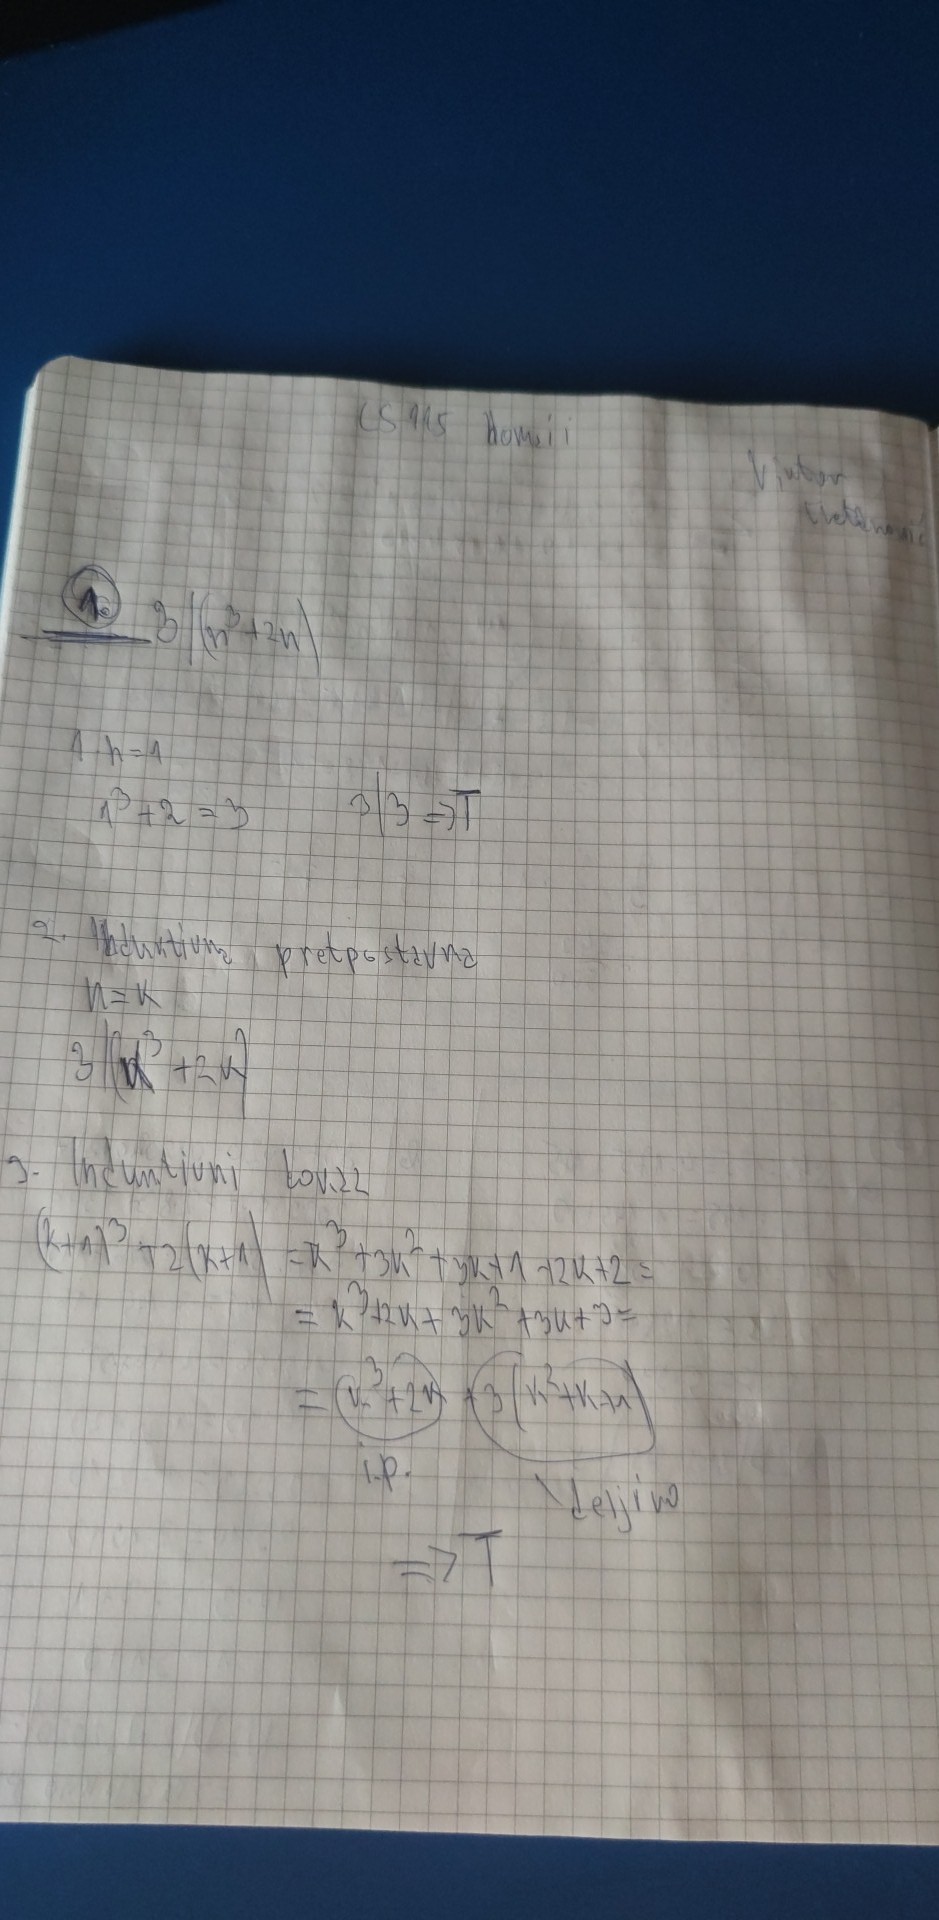 CS115 Domaći
Viktor
Cvetanović
1. 3|(n³+2n)
1. n=1
1³+2=3 3|3 => T
2. Induktivna pretpostavka
n=k
3|(k³+2k)
3. Induktivni dokaz
(k+1)³+2(k+1) = k³+3k²+3k+1+2k+2=
= k³+2k+3k²+3k+3=
= (k³+2k)+3(k²+k+1)
i.p.
deljivo
=> T